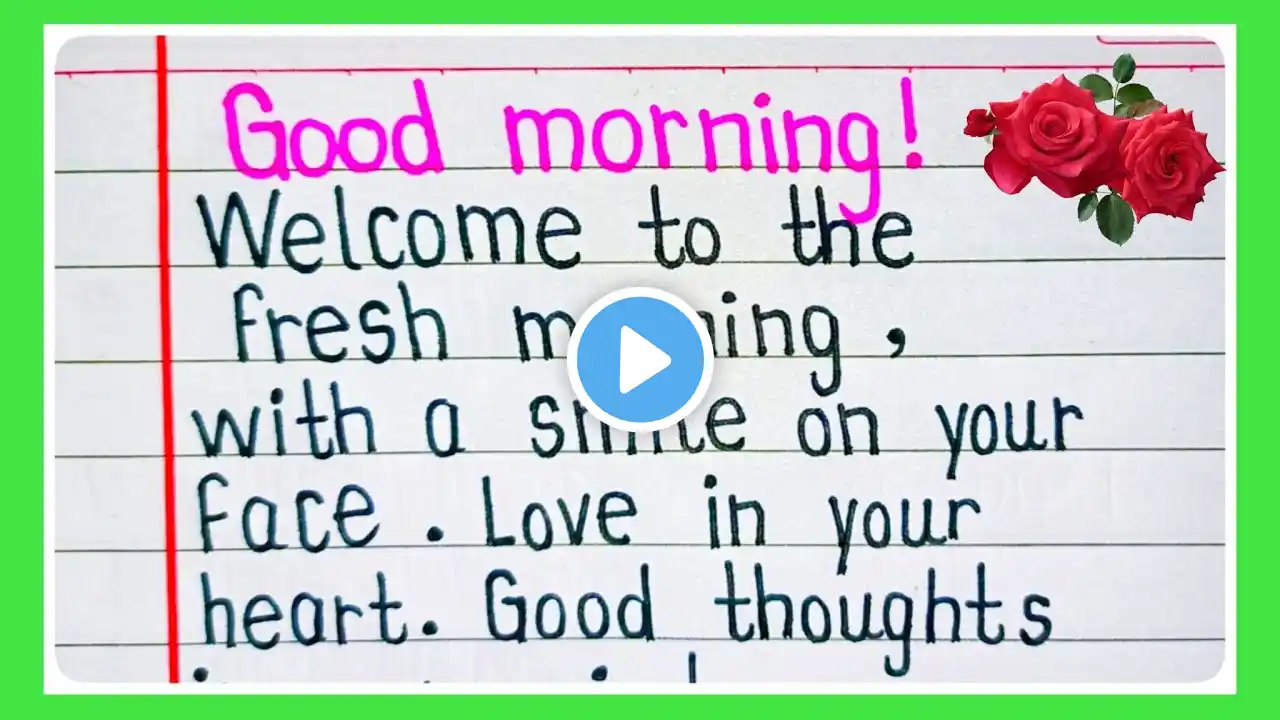 Good morning!
Welcome to the
fresh morning ,
with a smile on your
face . Love in your
heart. Good thoughts